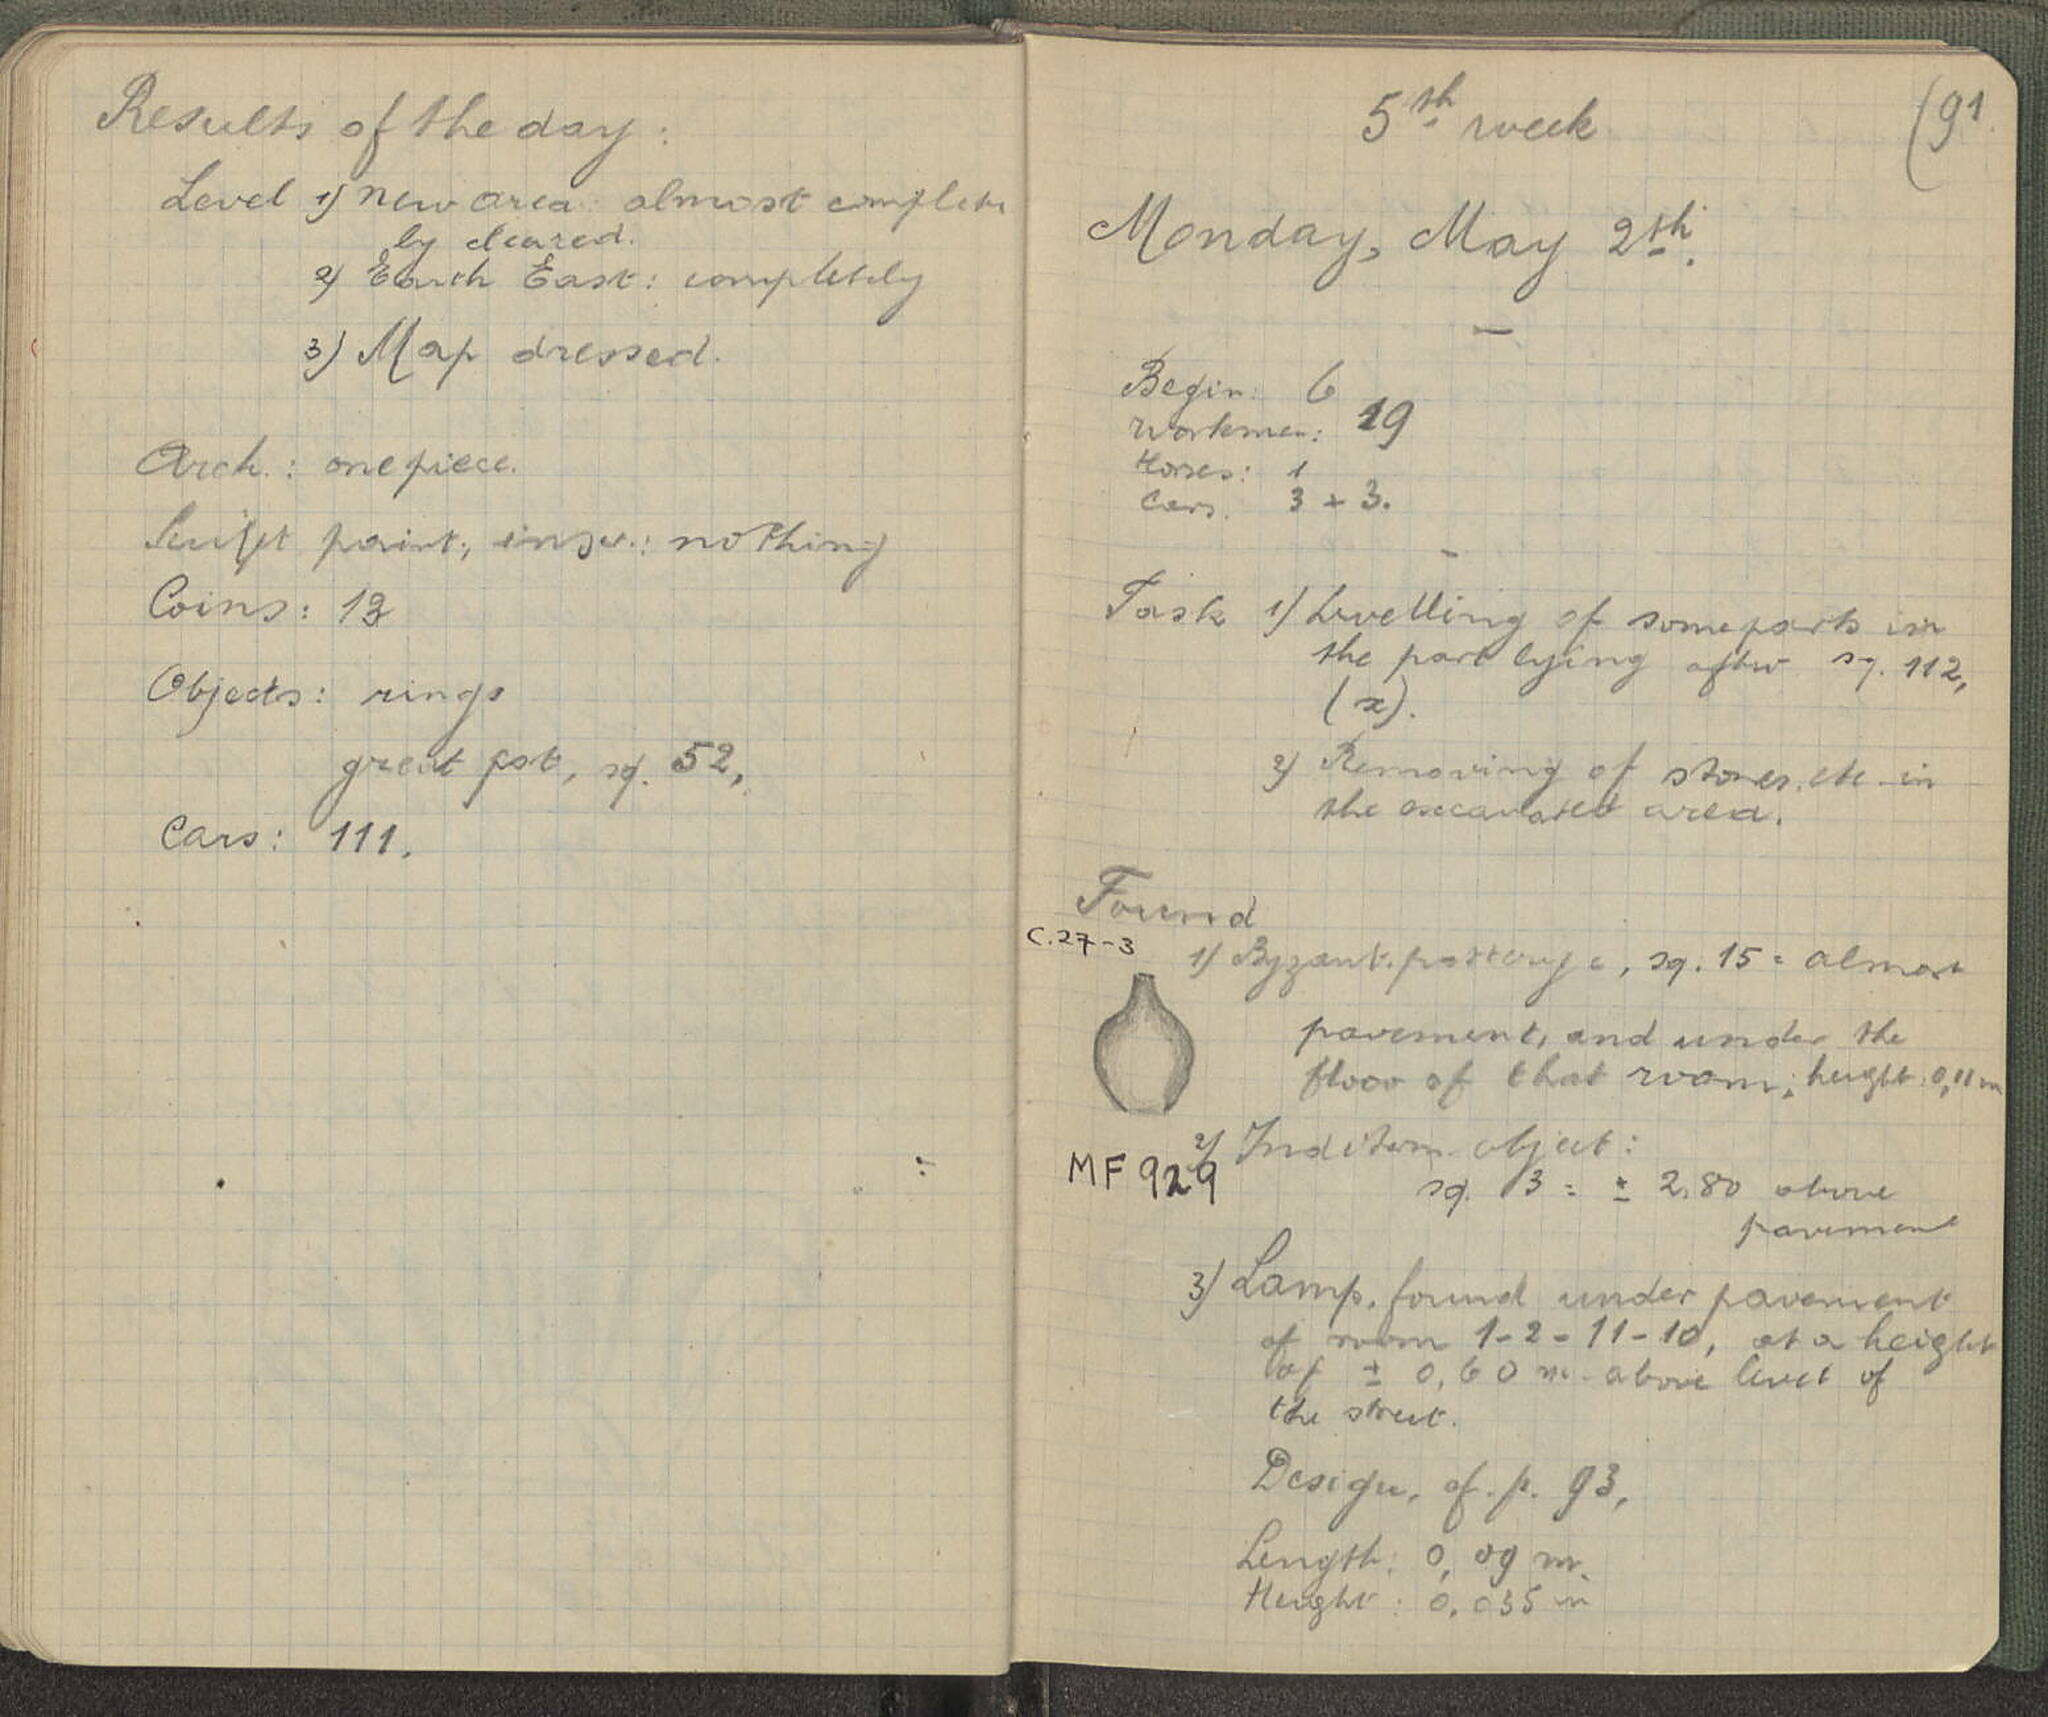 Results of the day:
Level 1) new area: almost complete
ly cleared.
2) Earth East: completely
3) Map dressed.
Arch.: one piece.
Sculpt paint; inscr.: nothing
Coins: 13
Objects: rings
great pot, sq. 52,
Cars: 111.
(91
5th week
Monday, May 2th.
Begin: 6
Workmen: 19
Horses: 1
Cars. 3 + 3.
Task 1) Levelling of some parts in
the part lying after sq. 112,
(x).
2) Removing of stones, etc. in
the excavated area.
Found
C.27-3
1) Byzant. pottery, sq. 15 = almost
pavement, and under the
floor of that room; height: 0,11 m
2) Indeterm. object:
MF 929
sq. 3 = ± 2.80 above
pavement
3) Lamp, found under pavement
of room 1-2-11-10, at a height
of ± 0,60 m. above level of
the street.
Design, cf. p. 93,
Length: 0,09 m.
Height: 0,035 m